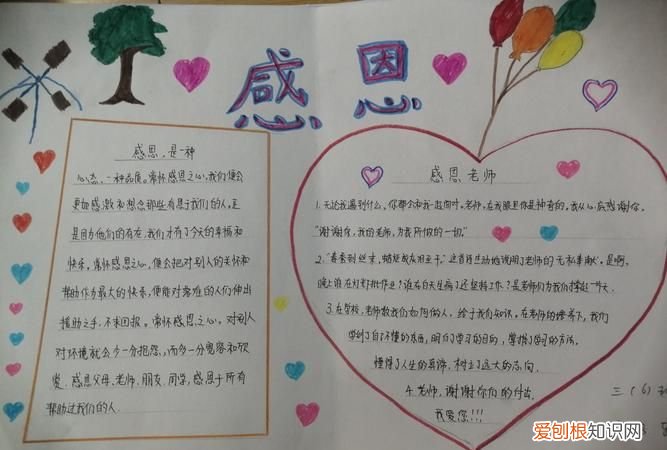 感恩
感恩,是一种
心态,一种品质。常怀感恩之心,我们便会
更加感激和想念那些有恩于我们的人,正
是因为他们的存在,我们才有了今天的幸福和
快乐,常怀感恩之心,便会把对别人的关怀和
帮助作为最大的快乐,便能对落难的人们伸出
援助之手,不求回报。常怀感恩之心。对别人
对环境就会少一分抱怨,而多一分宽容和欣
赏,感恩父母、老师、朋友、同学,感恩于所有
帮助过我们的人.
感恩老师
1.无论我遇到什么,你都会和我一起面对。老师,在我眼里你是神奇的。我从心底感谢你。
"谢谢你,我的老师,为我所做的一切。"
2."春蚕到丝末,蜡炬成灰泪至干。"这首诗生动地说明了老师的无私奉献。是啊,
晚上谁在灯灯批作业?谁在白天生病了还坚持工作?是老师们为我们撑起一片天.
3.在学校,老师教我们如何做人,给于我们知识,在老师的培养下,我们
学到了自己不懂的东西,明白了学习的目的,掌握了学习的方法,
懂得了人生的真谛,树立了远大的志向.
4.老师,谢谢你们的付出.
我爱您!!!
三(6)
爱刨根知识网
www.baogen.com